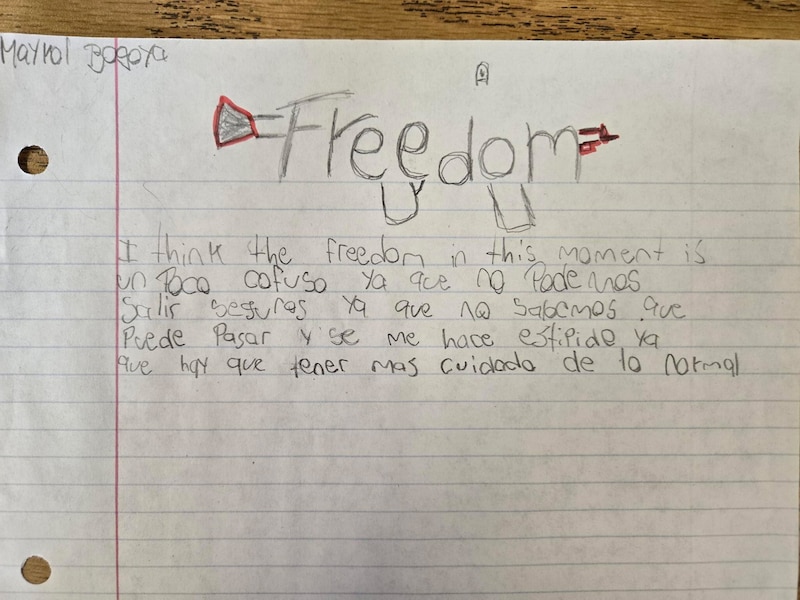 Maykol Bogoya
Freedom
I think the freedom in this moment is
un poco cofuso ya que no Podemos
Salir seguros ya que no sabemos que
Puede Pasar y se me hace estipido ya
que hay que tener mas cuidado de lo normal